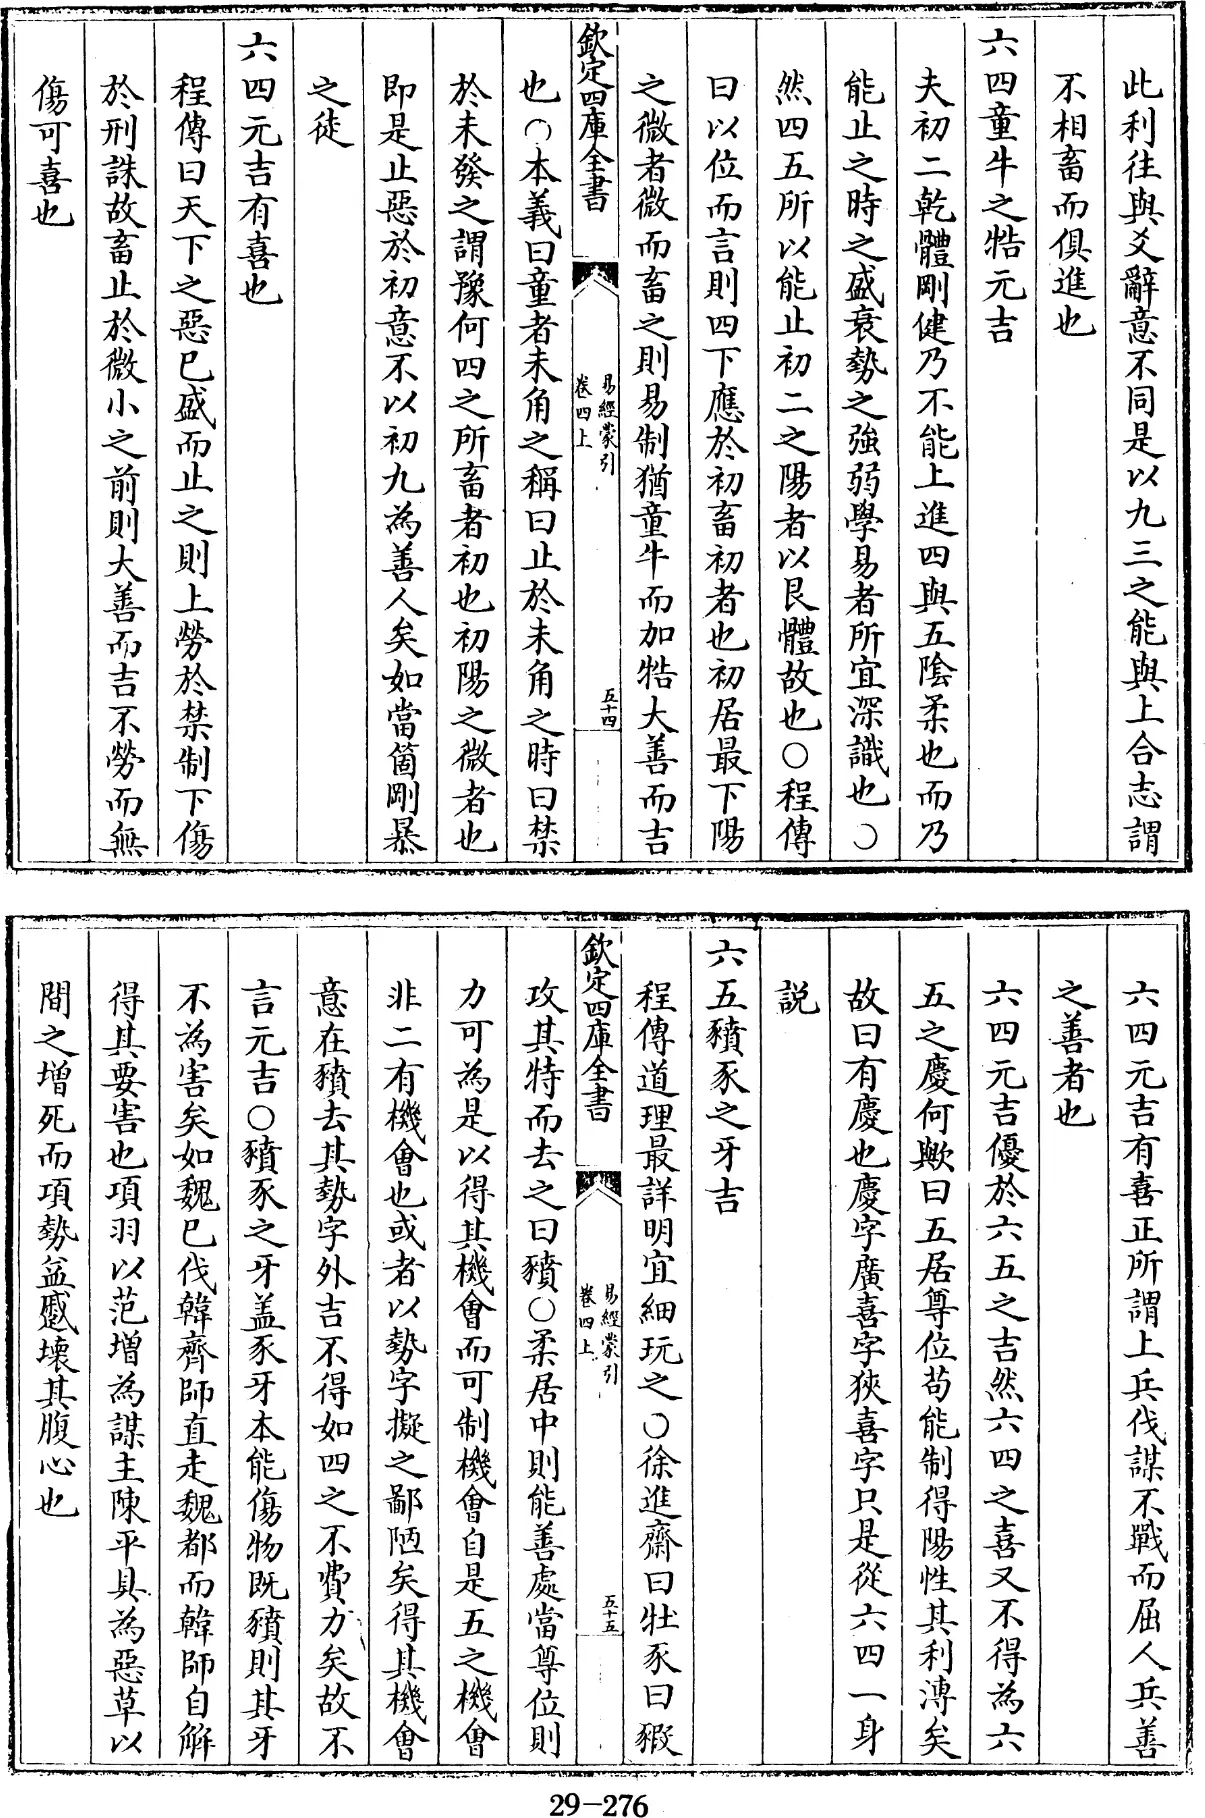 此利往與爻辭意不同是以九三之能與上合志謂
不相畜而俱進也
六四童牛之牿元吉
夫初二乾體剛健乃不能上進四與五陰柔也而乃
能止之時之盛衰勢之強弱學易者所宜深識也○
然四五所以能止初二之陽者以艮體故也○程傳
曰以位而言則四下應於初畜初者也初居最下陽
之微者微而畜之則易制猶童牛而加牿大善而吉
欽定四庫全書
易經蒙引
卷四上
五十四
也○本義曰童者未角之稱曰止於未角之時曰禁
於未發之謂豫何四之所畜者初也初陽之微者也
即是止惡於初意不以初九為善人矣如當箇剛暴
之徒
六四元吉有喜也
程傳曰天下之惡已盛而止之則上勞於禁制下傷
於刑誅故畜止於微小之前則大善而吉不勞而無
傷可喜也
六四元吉有喜正所謂上兵伐謀不戰而屈人兵善
之善者也
六四元吉優於六五之吉然六四之喜又不得為六
五之慶何歟曰五居尊位茍能制得陽性其利溥矣
故曰有慶也慶字廣喜字狹喜字只是從六四一身
說
六五豶豕之牙吉
程傳道理最詳明宜細玩之○徐進齋曰牡豕曰豭
欽定四庫全書
易經蒙引
卷四上
五十五
攻其特而去之曰豶○柔居中則能善處當尊位則
力可為是以得其機會而可制機會自是五之機會
非二有機會也或者以勢字擬之鄙陋矣得其機會
意在豶去其勢字外吉不得如四之不費力矣故不
言元吉○豶豕之牙蓋豕牙本能傷物既豶則其牙
不為害矣如魏已伐韓齊師直走魏都而韓師自解
得其要害也項羽以范增為謀主陳平具為惡草以
間之增死而項勢益蹙壞其腹心也
29-276